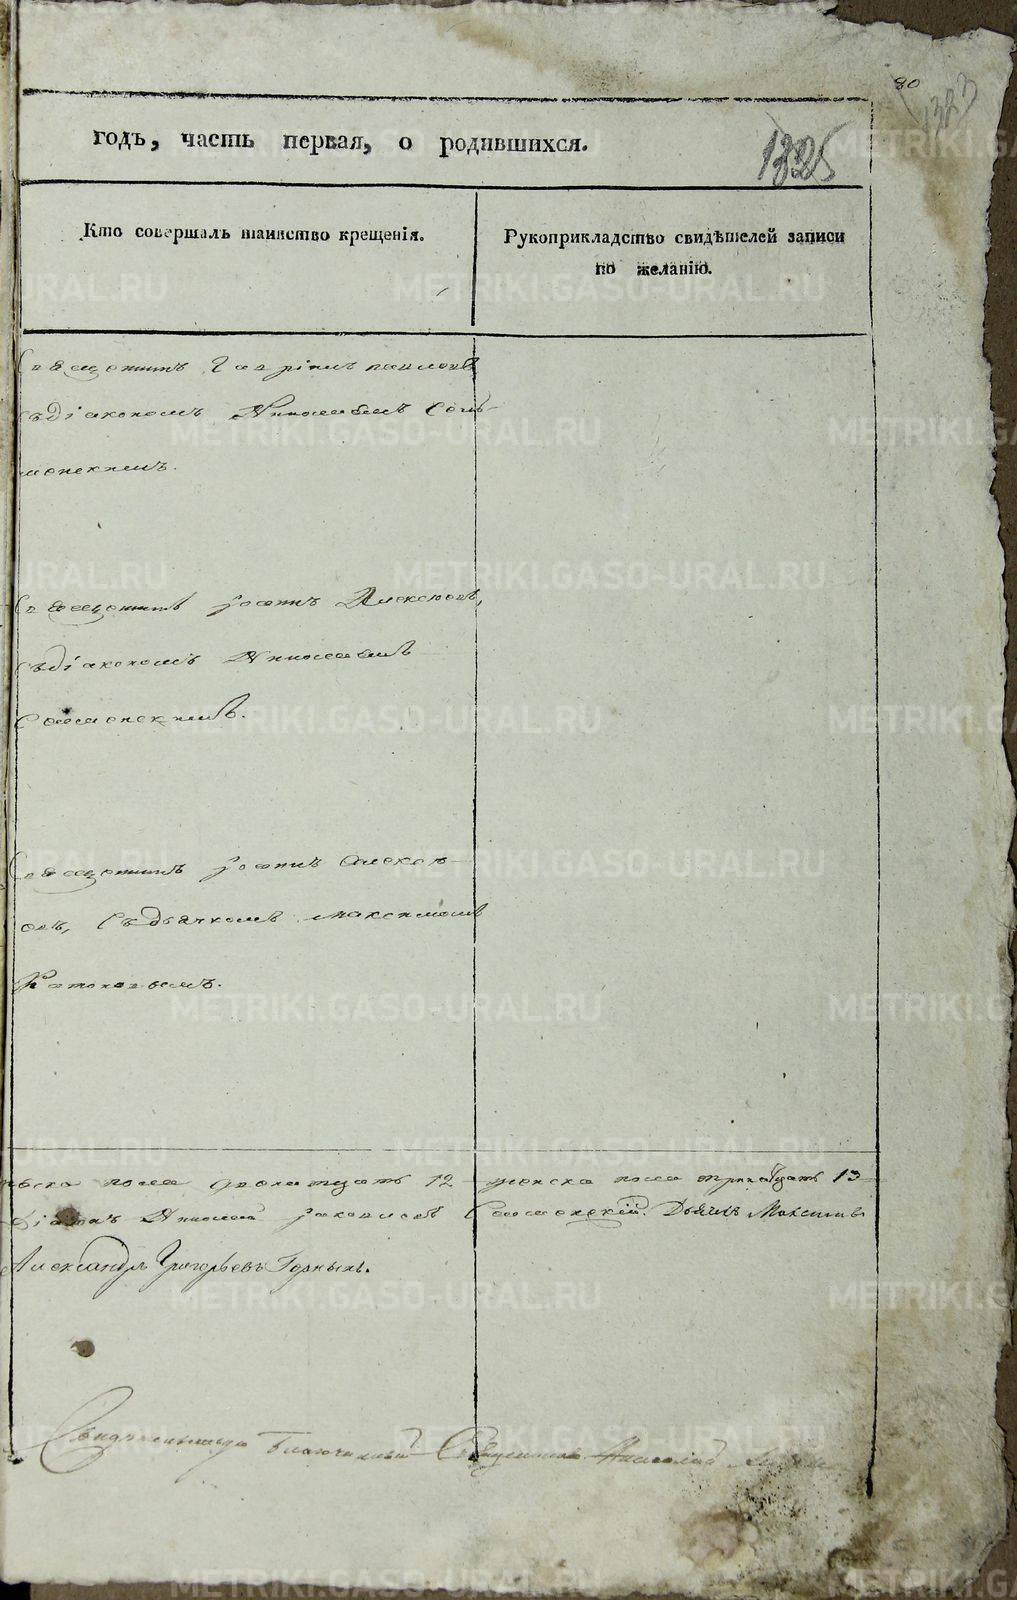 80
1323
годъ, часть первая, о родившихся.
1325
Кто совершалъ таинство крещенія.
Рукоприкладство свидѣтелей записи
по желанію.
Священникъ Гавріилъ Павловъ
съ діакономъ Николаемъ Соло-
монскимъ.
Священникъ Іоаннъ Алексѣевъ,
съ діакономъ Николаемъ
Соломонскимъ.
Священникъ Іоаннъ Алексѣ-
евъ, съ дьячкомъ Максимомъ
пола двенатцать 12
женска пола тринадцать 13
Николай Яковлевъ Соломонскій. Дьячекъ Максимъ
Александръ Григорьевъ Горныхъ.
Благочинный Священникъ
METRIKI.GASO-URAL.RU